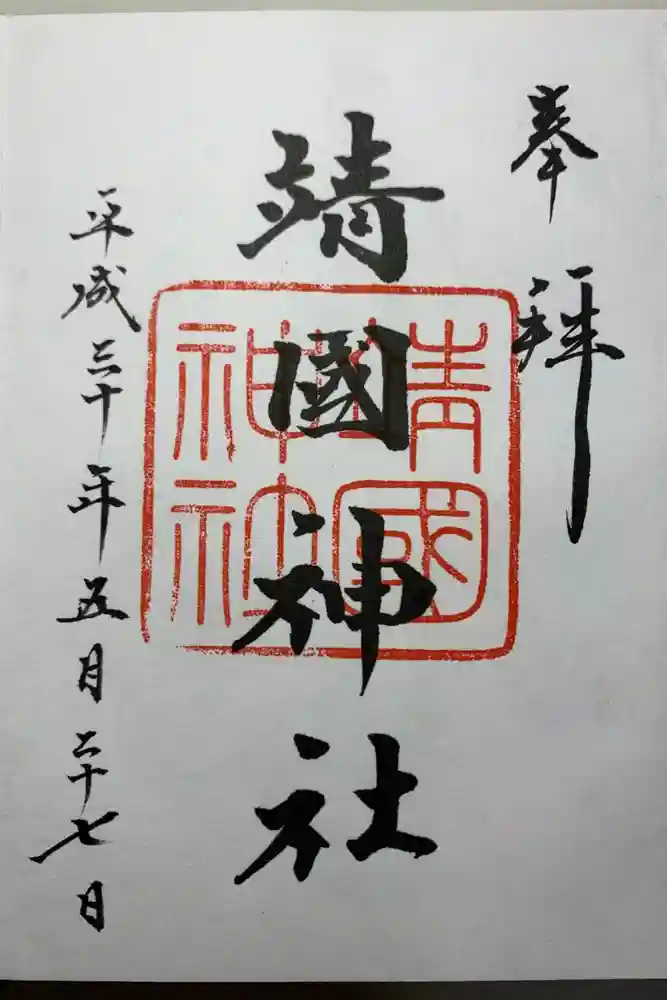 奉拝
靖國神社
靖國神社
平成三十年五月二十七日